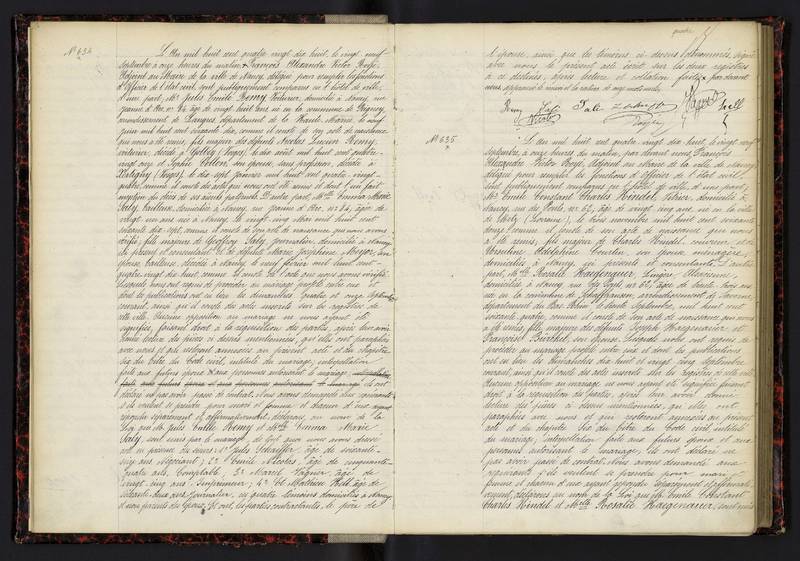 N° 634
L'An mil huit cent quatre vingt dix huit, le vingt neuf
septembre à onze heures du matin François Alexandre Victor
Adjoint au Maire de la ville de Nancy, délégué pour remplir les fonctions
d'Officier de l'état civil, sont publiquement comparus en l'hôtel de ville,
d'une part, Mr Jules Emile Remy, Voiturier, domicilié à Nancy, rue
Jeanne d'Arc, n° 24, âgé de vingt huit ans, né en la commune de
arrondissement de Langres, département de la Haute Marne, le neuf
juin mil huit cent soixante dix, comme il conste de son acte de naissance
que nous a été remis, fils majeur des défunts Nicolas Lucien Remy,
voiturier, décédé à (Vosges), le dix août mil huit cent quatre-
vingt onze et Sophie son épouse, sans profession, décédée à
(Vosges), le dix sept janvier mil huit cent quatre-vingt-
quatre, comme il conste des actes qui nous ont été remis et dont l'un fait
mention du décès de ses aïeuls paternels. D'autre part, Mlle Emma Marie
Saly, tailleuse, domiciliée à Nancy, rue Jeanne d'Arc, n° 24, âgée de
vingt un ans, née à Nancy, le vingt cinq Mai mil huit cent
soixante dix-sept, comme il conste de son acte de naissance, que nous avons
vérifié, fille majeure de Geoffroy Saly, journalier, domicilié à Nancy,
ici présent et consentant et de défunte Marie Joséphine Meyer, son
épouse, tailleuse, décédée à Nancy, le neuf février mil huit cent
quatre vingt dix huit, comme il conste de l'acte que nous avons vérifié.
Lesquels nous ont requis de procéder au mariage projeté entre eux et
dont les publications ont eu lieu les dimanches quatre et onze septembre
courant, ainsi qu'il conste des actes inscrits sur les registres de
cette ville. Aucune opposition au mariage ne nous ayant été
signifiée, faisant droit à la réquisition des parties, après leur avoir
donné lecture des pièces ci dessus mentionnées, qui elles ont paraphées
avec nous et qui resteront annexées au présent acte et du chapitre
six du titre du Code civil, intitulé du mariage, interpellation
faite aux futurs époux & aux personnes autorisant le mariage
ils ont
déclaré ne pas avoir passé de contrat. Nous avons demandé aux comparants
s'ils veulent se prendre pour mari et femme et chacun d'eux ayant
répondu séparément et affirmativement, déclarons, au nom de la
loi, que Mr Jules Emile Remy et Mlle Emma Marie
Saly, sont unis par le mariage, de tout quoi nous avons dressé
acte en présence des sieurs 1° Jules Schaeffer, âgé de soixante-
cinq ans, Négociant; 2° Emile Nicolas, âgé de cinquante-
quatre ans, Comptable; 3° Marie Wagner, âgé de
vingt-cinq ans, Imprimeur; 4° Et Mathieu Noël, âgé de
soixante deux ans, journalier, ces quatre témoins domiciliés à Nancy
et non parents des époux. Et ont, les parties contractantes, le père de
l'épouse, ainsi que les témoins, ci-dessus dénommés, signé
avec nous le présent acte écrit sur les deux registres
à ce destinés, après lecture et collation faites par devant
nous, approuvé le renvoi et la rature de sept mots nuls.
Remy Saly Saly
Nicolas
N° 635
L'An mil huit cent quatre vingt dix huit, le vingt neuf
septembre, à onze heures du matin, par devant nous François
Alexandre Victor adjoint au Maire de la ville de Nancy,
délégué pour remplir les fonctions d'Officier de l'état civil,
sont publiquement comparus en l'hôtel de ville, d'une part,
Mr Emile Constant Charles Kindel, domicilié à
Nancy, rue du n° 62, âgé de vingt cinq ans, né en la ville
de Metz (Lorraine), le trois novembre mil huit cent soixante
douze, comme il conste de son acte de naissance que nous
a été remis, fils majeur de Charles Kindel, couvreur et de
son épouse, ménagère,
domiciliés à Nancy, ici présents et consentants. D'autre
part, Mlle Rosalie Haegenauer, Lingère, Alsacienne,
domiciliée à Nancy, rue n° 62, âgée de trente trois ans,
née en la commune de Schaffhausen, arrondissement de Saverne,
département du Bas-Rhin, le trente septembre, mil huit cent
soixante quatre, comme il conste de son acte de naissance que nous
a été remis, fille majeure des défunts Joseph Haegenauer et
Françoise son épouse. Lesquels nous ont requis de
procéder au mariage projeté entre eux et dont les publications
ont eu lieu les dimanches dix huit et vingt cinq Septembre
courant, ainsi qu'il conste des actes inscrits sur les registres de cette ville.
Aucune opposition au mariage ne nous ayant été signifiée, faisant
droit à la réquisition des parties, après leur avoir donné
lecture des pièces ci dessus mentionnées, qu'elles ont
paraphées avec nous et qui resteront annexées au présent
acte et du chapitre six du titre du Code civil, intitulé
du mariage, interpellation faite aux futurs époux et aux
personnes autorisant le mariage, ils ont déclaré ne
pas avoir passé de contrat. Nous avons demandé aux
comparants s'ils veulent se prendre pour mari et
femme et chacun d'eux ayant répondu séparément et affirmati-
vement, déclarons au nom de la loi que Mr Emile Constant
Charles Kindel et Mlle Rosalie Haegenauer, sont unis